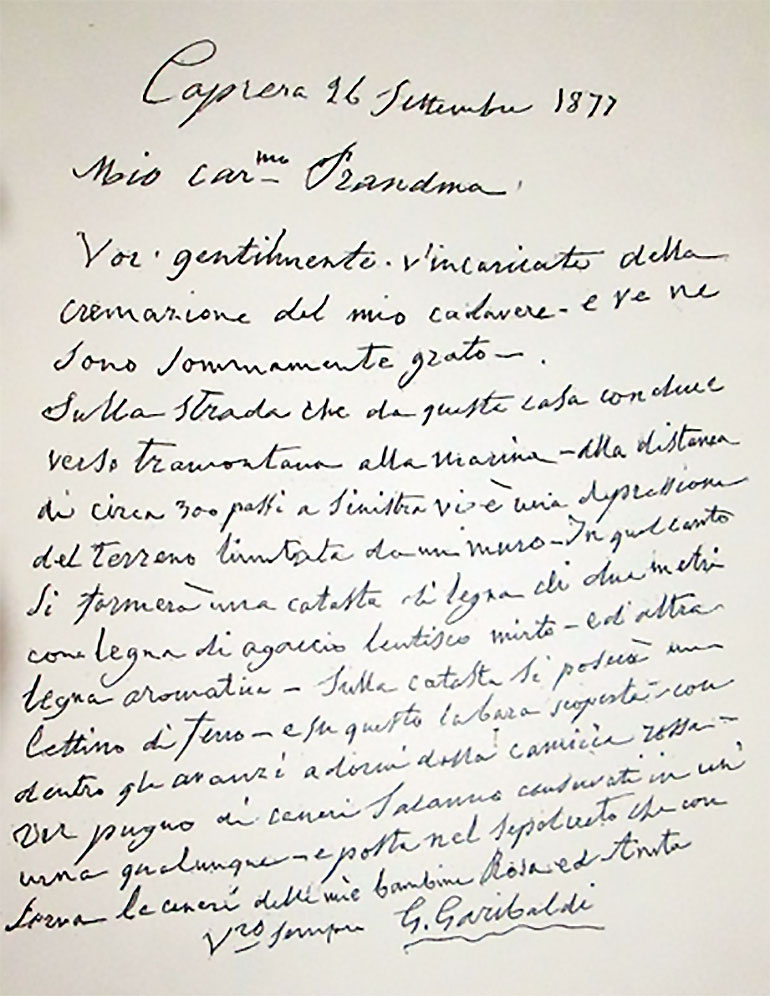 Caprera 26 Settembre 1877
Mio car.mo Prandina,
Voi gentilmente v'incaricate della
cremazione del mio cadavere - e ve ne
sono sommamente grato -.
Sulla strada che da questa casa conduce
verso tramontana alla marina - alla distanza
di circa 300 passi a sinistra vi è una depressione
del terreno limitata da un muro - In quel canto
si formerà una catasta di legna di due metri
con legna di agaccio lentisco mirto - ed altra
legna aromatica - Sulla catasta si poserà un
lettino di ferro - e su questo la bara scoperta - con
dentro gli avanzi adorni della camicia rossa -
Un pugno di ceneri saranno conservati in un'
urna qualunque - e posta nel sepolcreto che con
serva le ceneri delle mie bambine Rosa ed Anita
Vro sempre G. Garibaldi